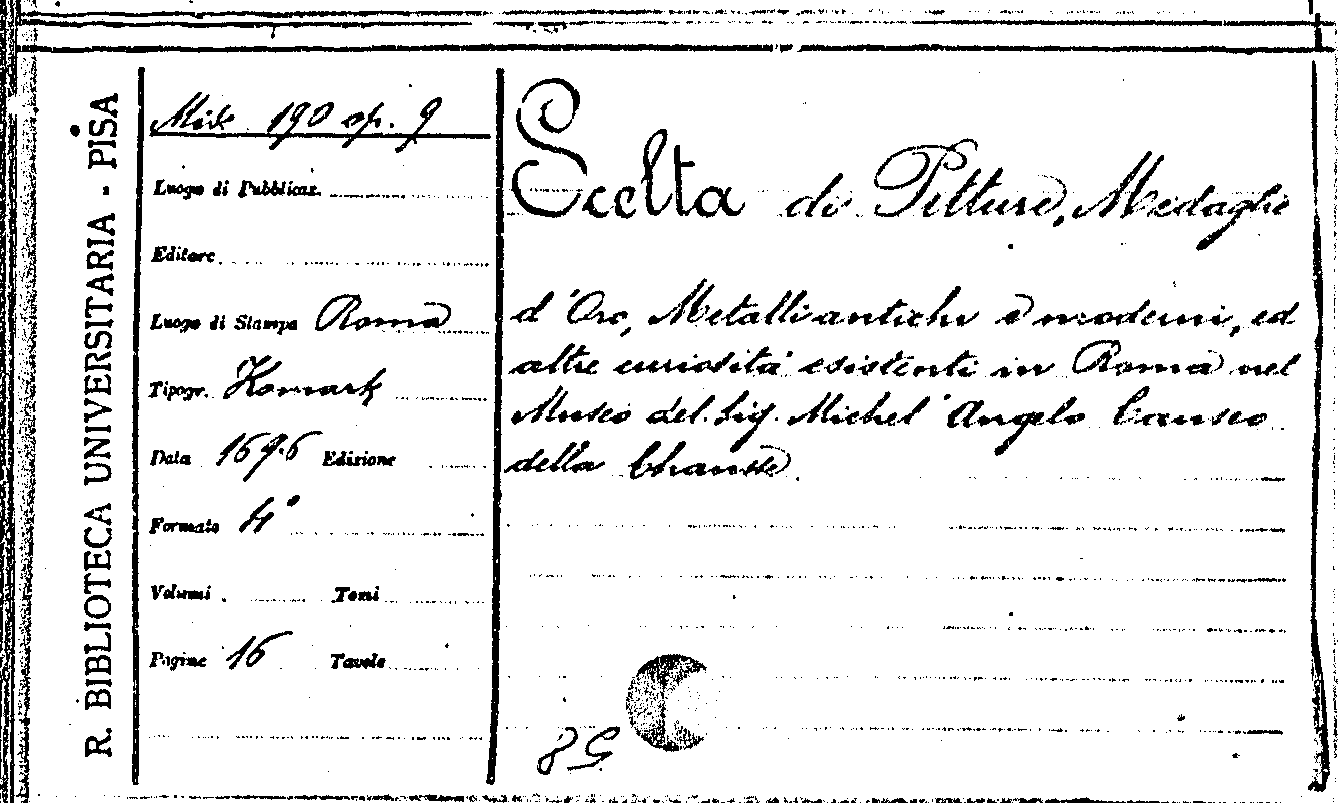 R. BIBLIOTECA UNIVERSITARIA - PISA
Misc 190 op. 9
Luogo di Pubblicaz.
Editore
Luogo di Stampa Roma
Tipogr. Komark
Data 1696 Edizione
Formato 4°
Volumi Tomi
Pagine 16 Tavole
Scelta di Pitture, Medaglie
d'Oro, Metalli antichi e moderni, ed
altre curiosità esistenti in Roma nel
Museo del Sig. Michel'Angelo Causeo
della Chausse.
58